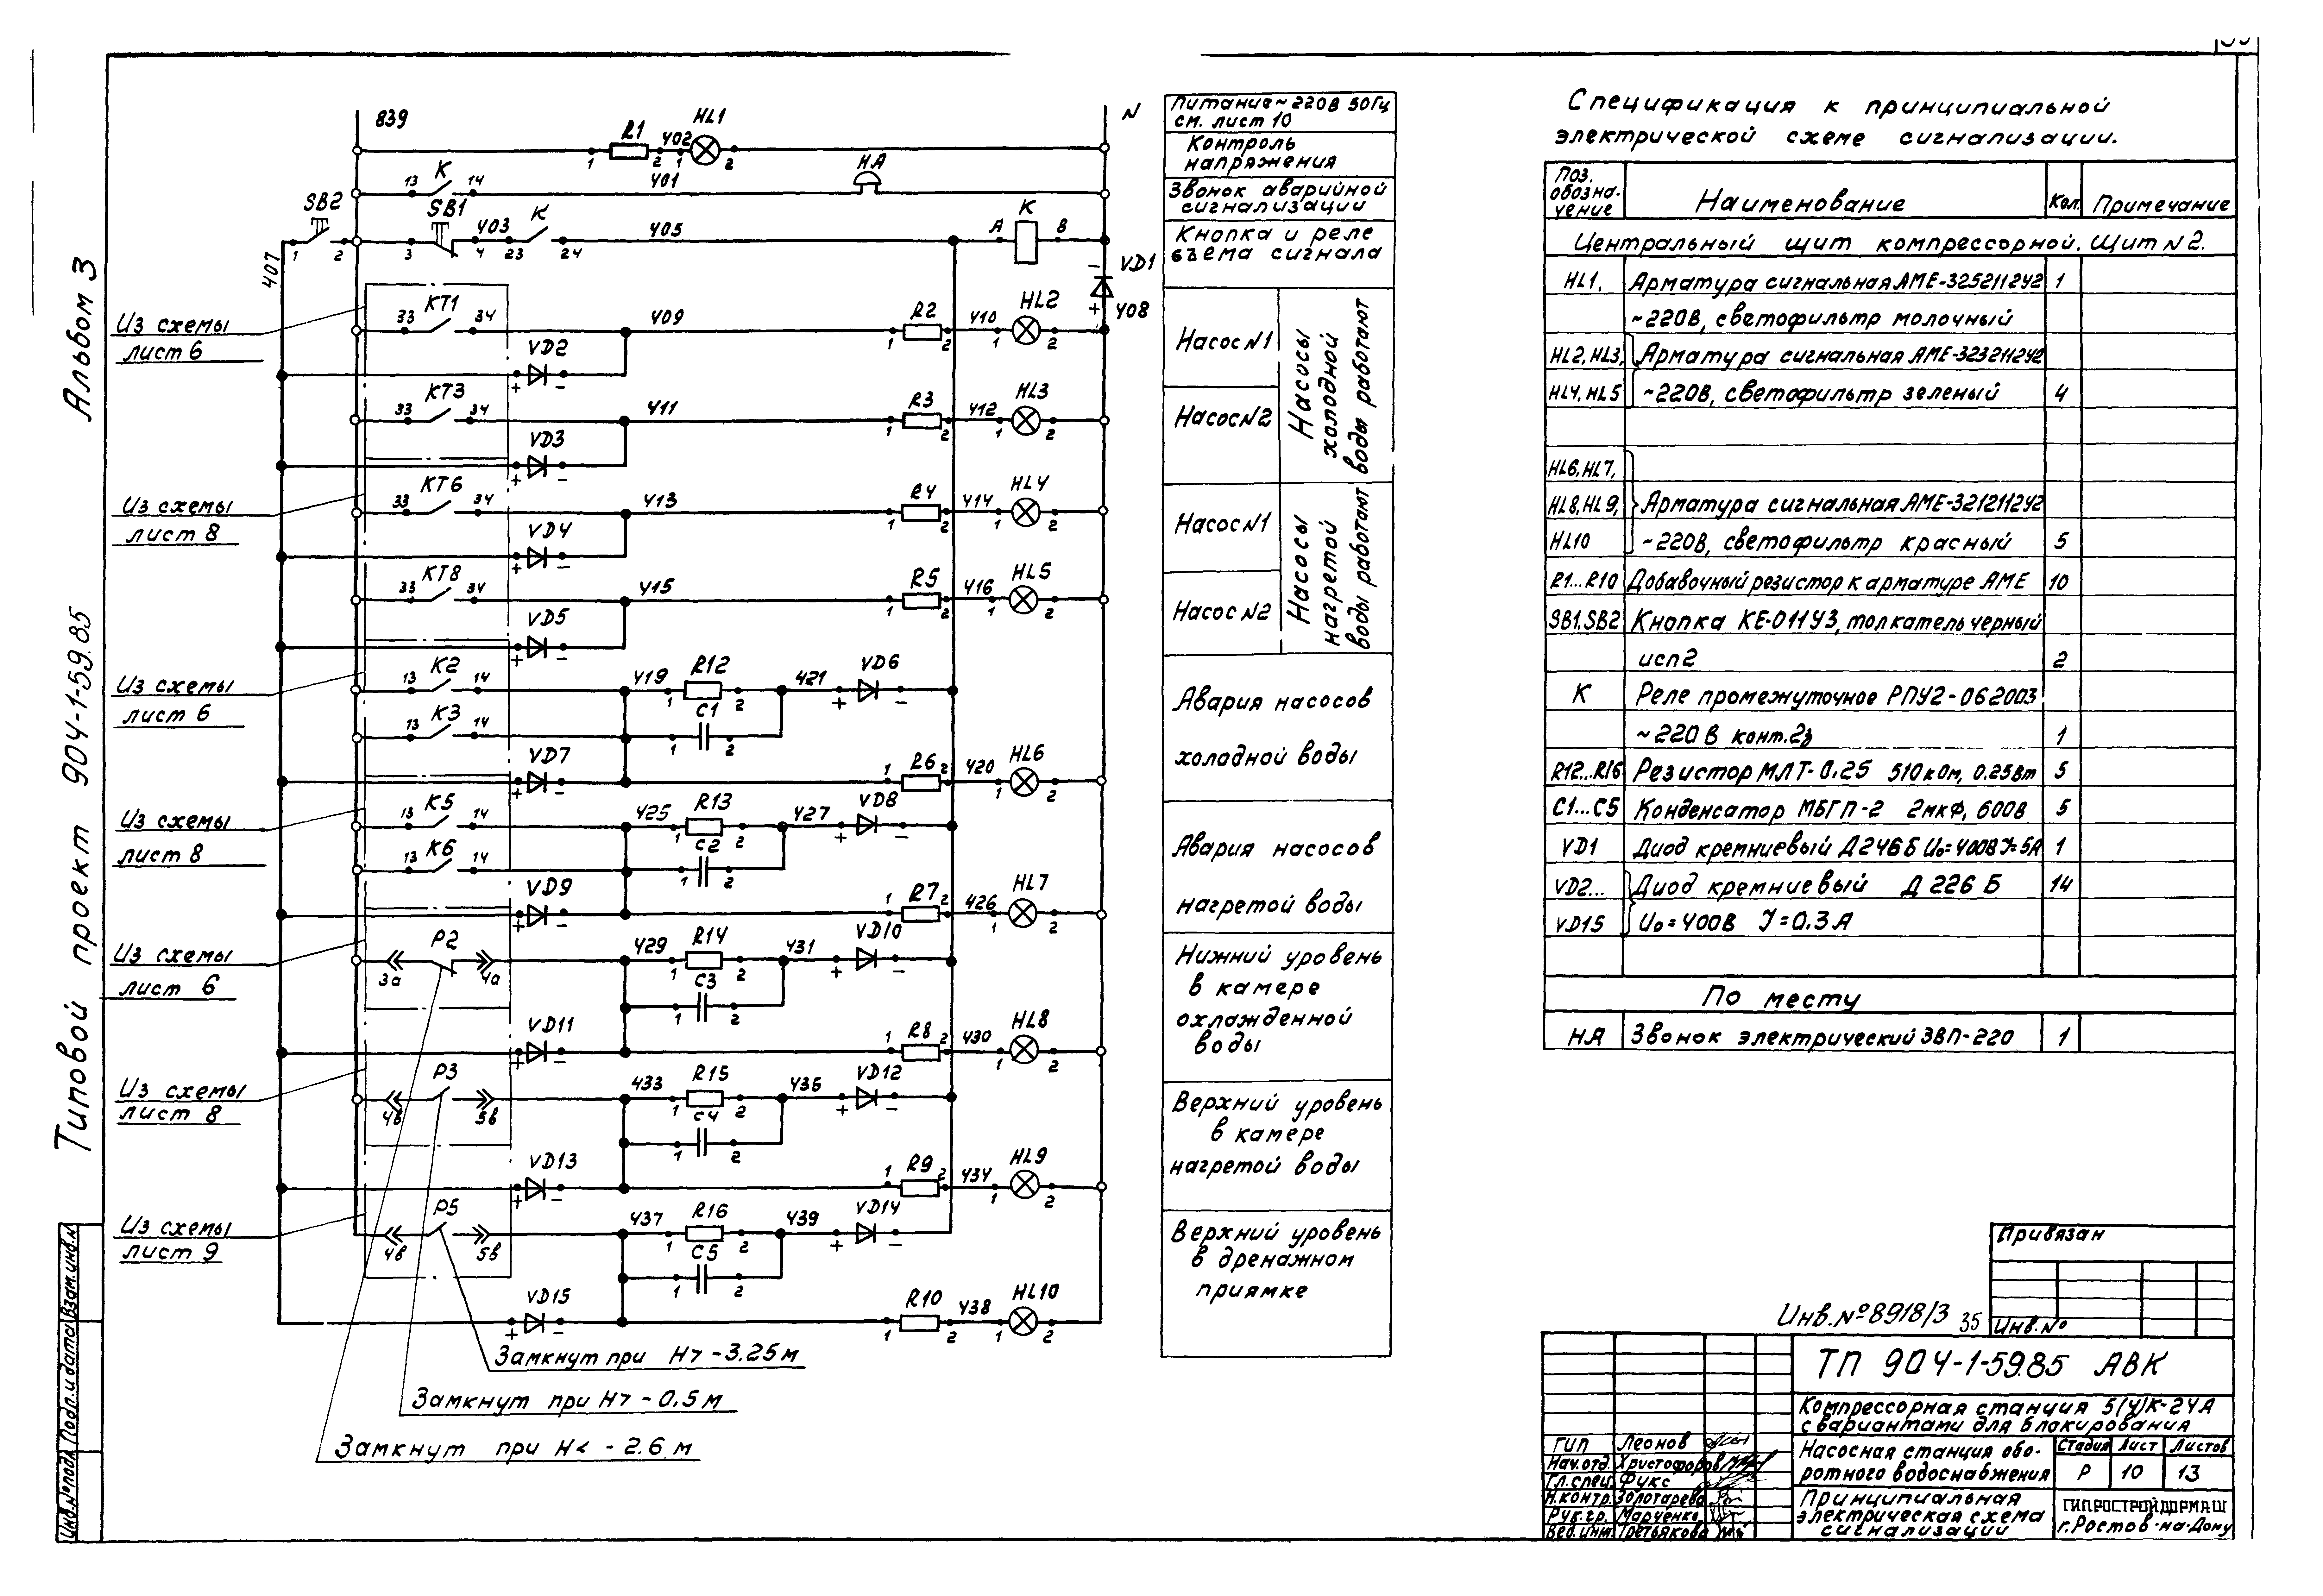 Альбом 3
Типовой проект 904-1-59.85
839
N
R1
402
HL1
1
2
1
2
13
K
14
401
HA
SB2
1
2
SB1
3
4
403
23
K
24
405
A
K
B
407
VD1
-
+
408
Из схемы
лист 6
33
KT1
34
409
R2
1
2
410
HL2
1
2
VD2
+
-
33
KT3
34
411
R3
1
2
412
HL3
1
2
VD3
+
-
Из схемы
лист 8
33
KT6
34
413
R4
1
2
414
HL4
1
2
VD4
+
-
33
KT8
34
415
R5
1
2
416
HL5
1
2
VD5
+
-
Из схемы
лист 6
13
K2
14
419
R12
1
2
421
VD6
+
-
13
K3
14
C1
1
2
VD7
+
-
R6
1
2
420
HL6
1
2
Из схемы
лист 8
13
K5
14
425
R13
1
2
427
VD8
+
-
13
K6
14
C2
1
2
VD9
+
-
R7
1
2
426
HL7
1
2
Из схемы
лист 6
3а
P2
4а
429
R14
1
2
431
VD10
+
-
C3
1
2
VD11
+
-
R8
1
2
430
HL8
1
2
Из схемы
лист 8
4в
P3
5в
433
R15
1
2
435
VD12
+
-
C4
1
2
VD13
+
-
R9
1
2
434
HL9
1
2
Из схемы
лист 9
4в
P5
5в
437
R16
1
2
439
VD14
+
-
C5
1
2
VD15
+
-
R10
1
2
438
HL10
1
2
Замкнут при H>-3.25м
Замкнут при H>-0.5м
Замкнут при H<-2.6м
Питание~220В 50Гц
см. лист 10
Контроль
напряжения
Звонок аварийной
сигнализации
Кнопка и реле
съема сигнала
Насос N1
Насос N2
Насосы
холодной
воды работают
Насос N1
Насос N2
Насосы
нагретой
воды работают
Авария насосов
холодной воды
Авария насосов
нагретой воды
Нижний уровень
в камере
охлажденной
воды
Верхний уровень
в камере
нагретой воды
Верхний уровень
в дренажном
приямке
Спецификация к принципиальной
электрической схеме сигнализации.
Поз.
обозна-
чение
Наименование
Кол.
Примечание
Центральный щит компрессорной. Щит N2.
HL1, Арматура сигнальная АМЕ-325211242 1
~220В, светофильтр молочный
HL2, HL3, Арматура сигнальная АМЕ-323211242
HL4, HL5 ~220В, светофильтр зеленый 4
HL6, HL7,
HL8, HL9, Арматура сигнальная АМЕ-321211242
HL10 ~220В, светофильтр красный 5
R1...R10 Добавочный резистор к арматуре АМЕ 10
SB1, SB2 Кнопка КЕ-011У3, толкатель черный
исп2 2
K Реле промежуточное РПУ2-062003
~220В конт.2з 1
R12...R16 Резистор МЛТ-0.25 510кОм, 0.25Вт 5
C1...C5 Конденсатор МБГП-2 2мкФ, 600В 5
VD1 Диод кремниевый Д246Б U₀=400В J=5А 1
VD2... Диод кремниевый Д226Б 14
VD15 U₀=400В J=0.3А
По месту
HA Звонок электрический ЗВП-220 1
Привязан
Инв.№
Инв.№8918/3 35
ТП 904-1-59.85 АВК
Компрессорная станция 5(4)К-24А
с вариантами для блокирования
Насосная станция обо-
ротного водоснабжения
Стадия Лист Листов
Р 10 13
Принципиальная
электрическая схема
сигнализации
ГИПРОСТРОЙДОРМАШ
г.Ростов-на-Дону
ГИП Леонов
Нач.отд. Христофоров
Гл.спец. Фукс
Н.контр. Золотарева
Рук.гр. Марченко
Вед.инж. Третьякова
Взам.инв.N
Подп.и дата
Инв.№подл.